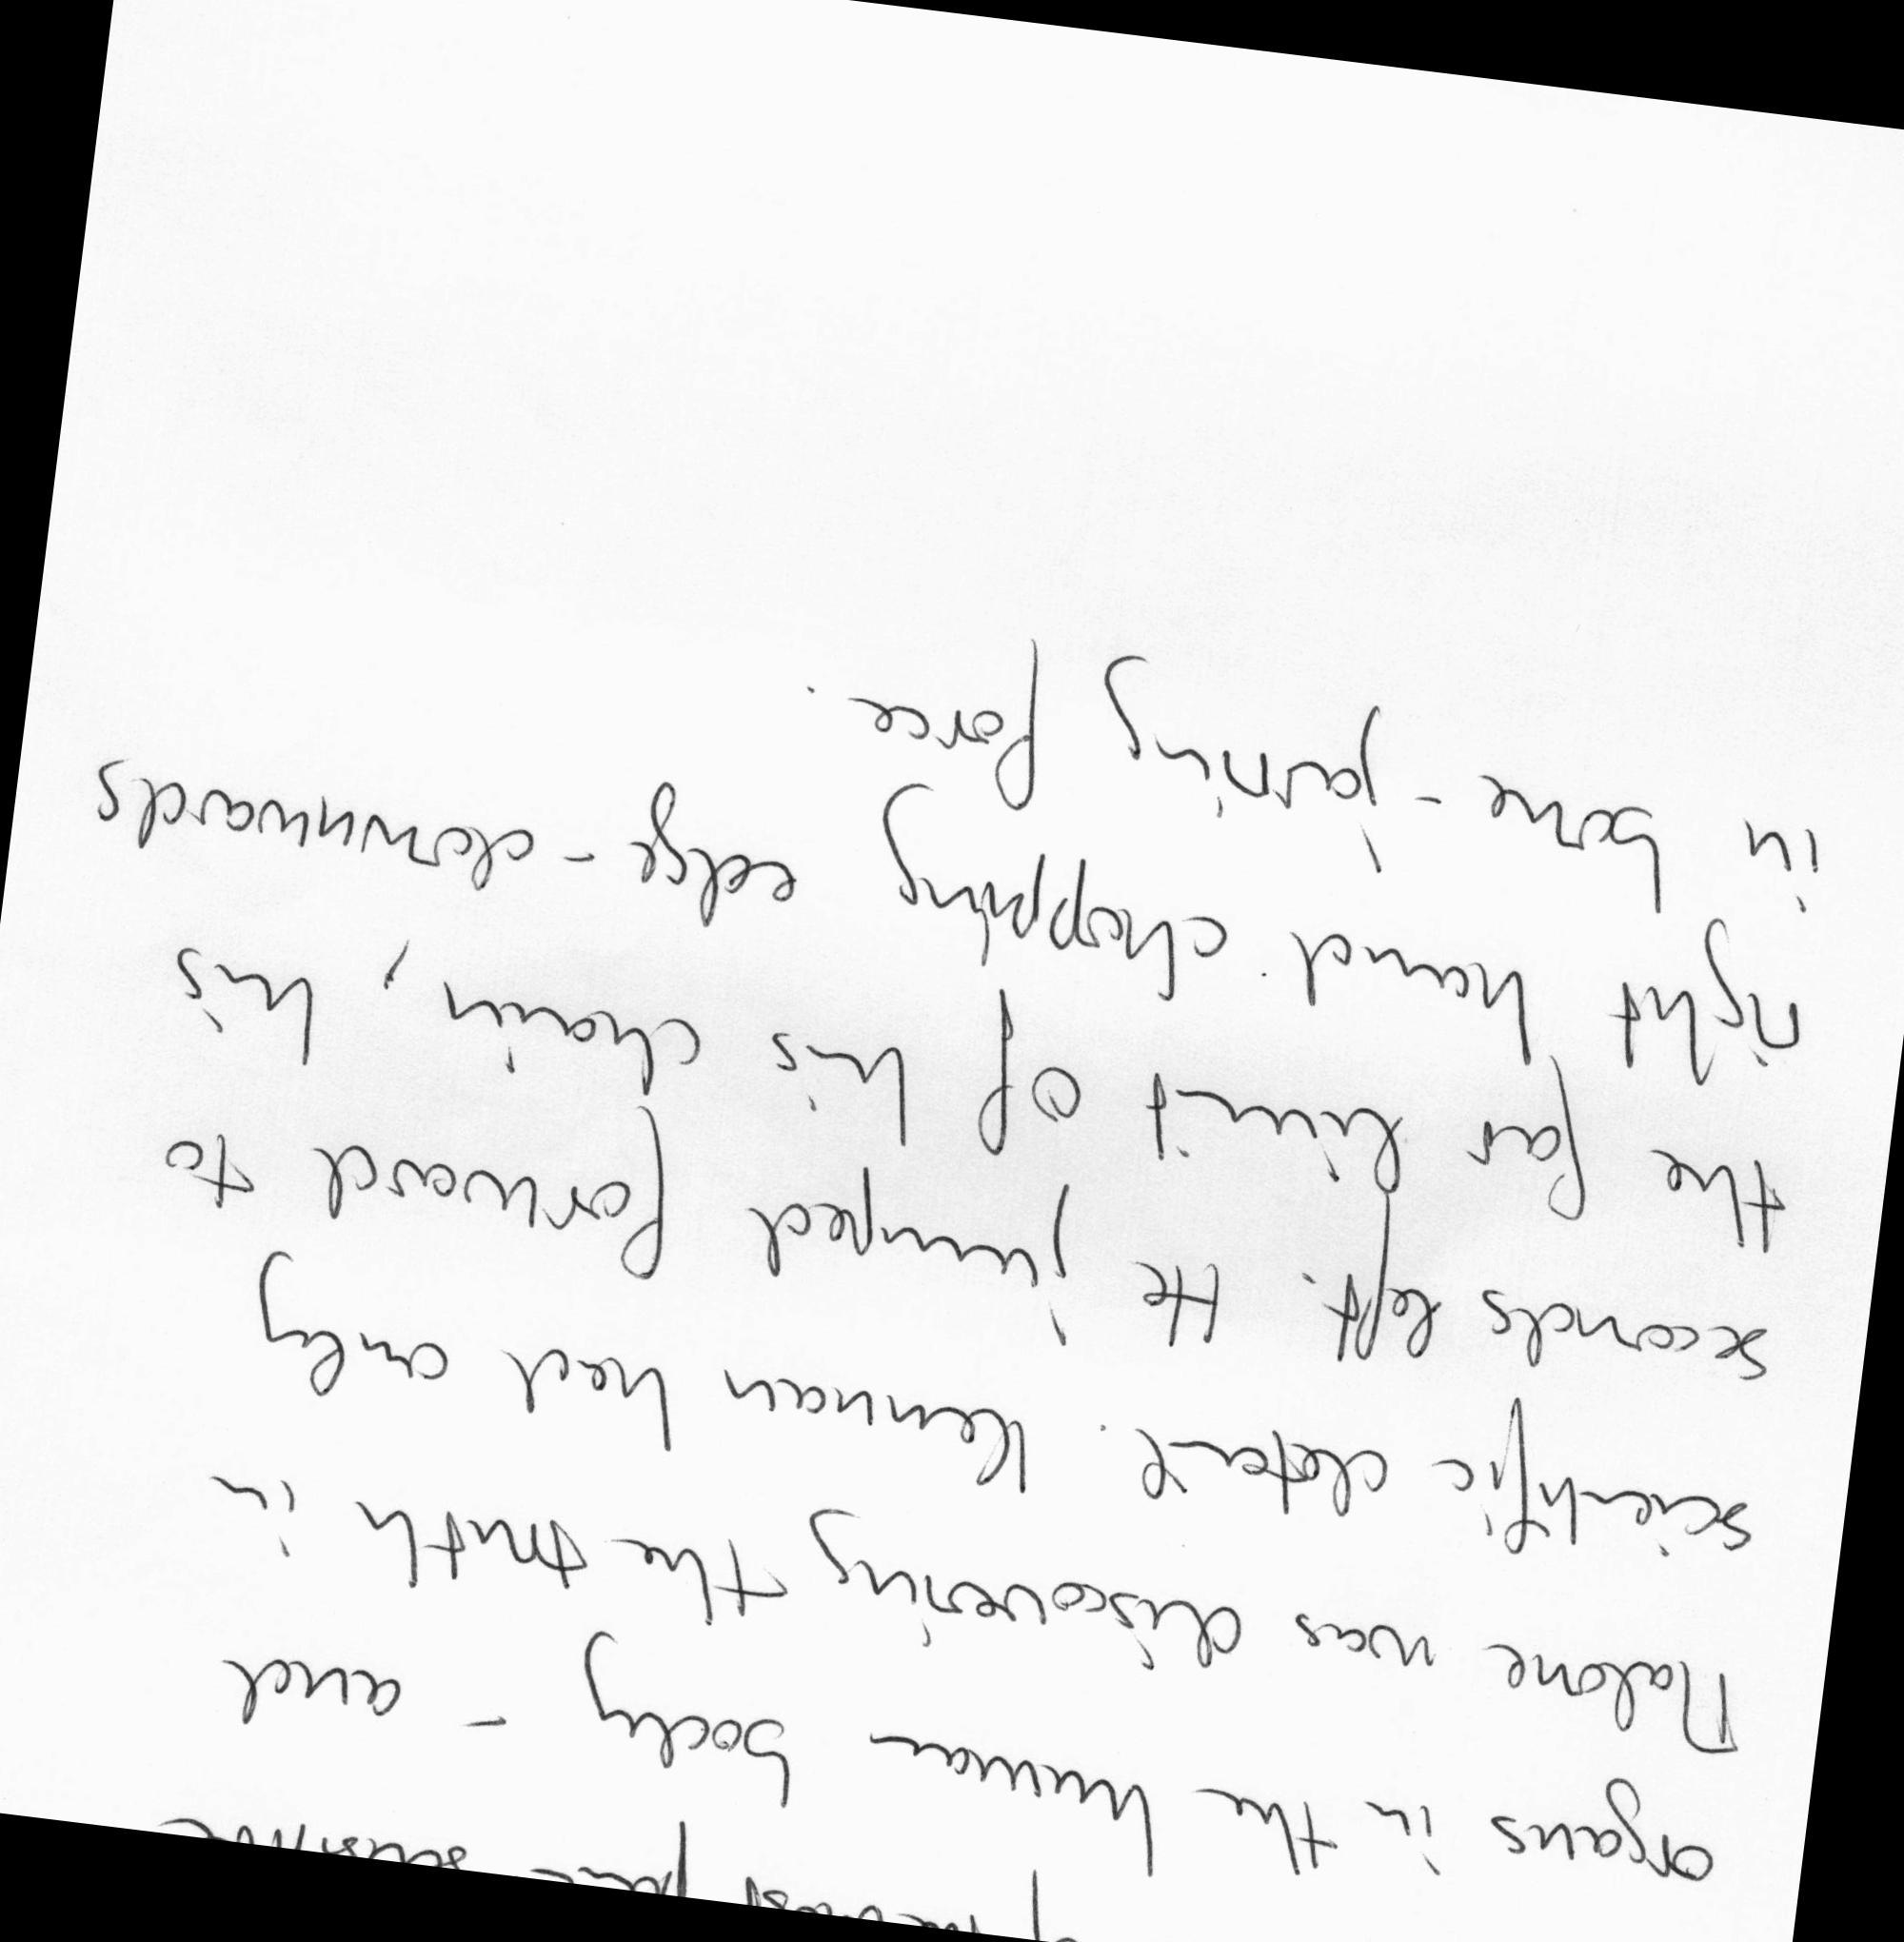 most pain sensitive
organs in the human body - and
Malone was discovering the truth in
scientific detail. Kennan had only
seconds left. He jumped forward to
the far limit of his chain, his
right hand chopping edge - downwards
in bone - jarring force.